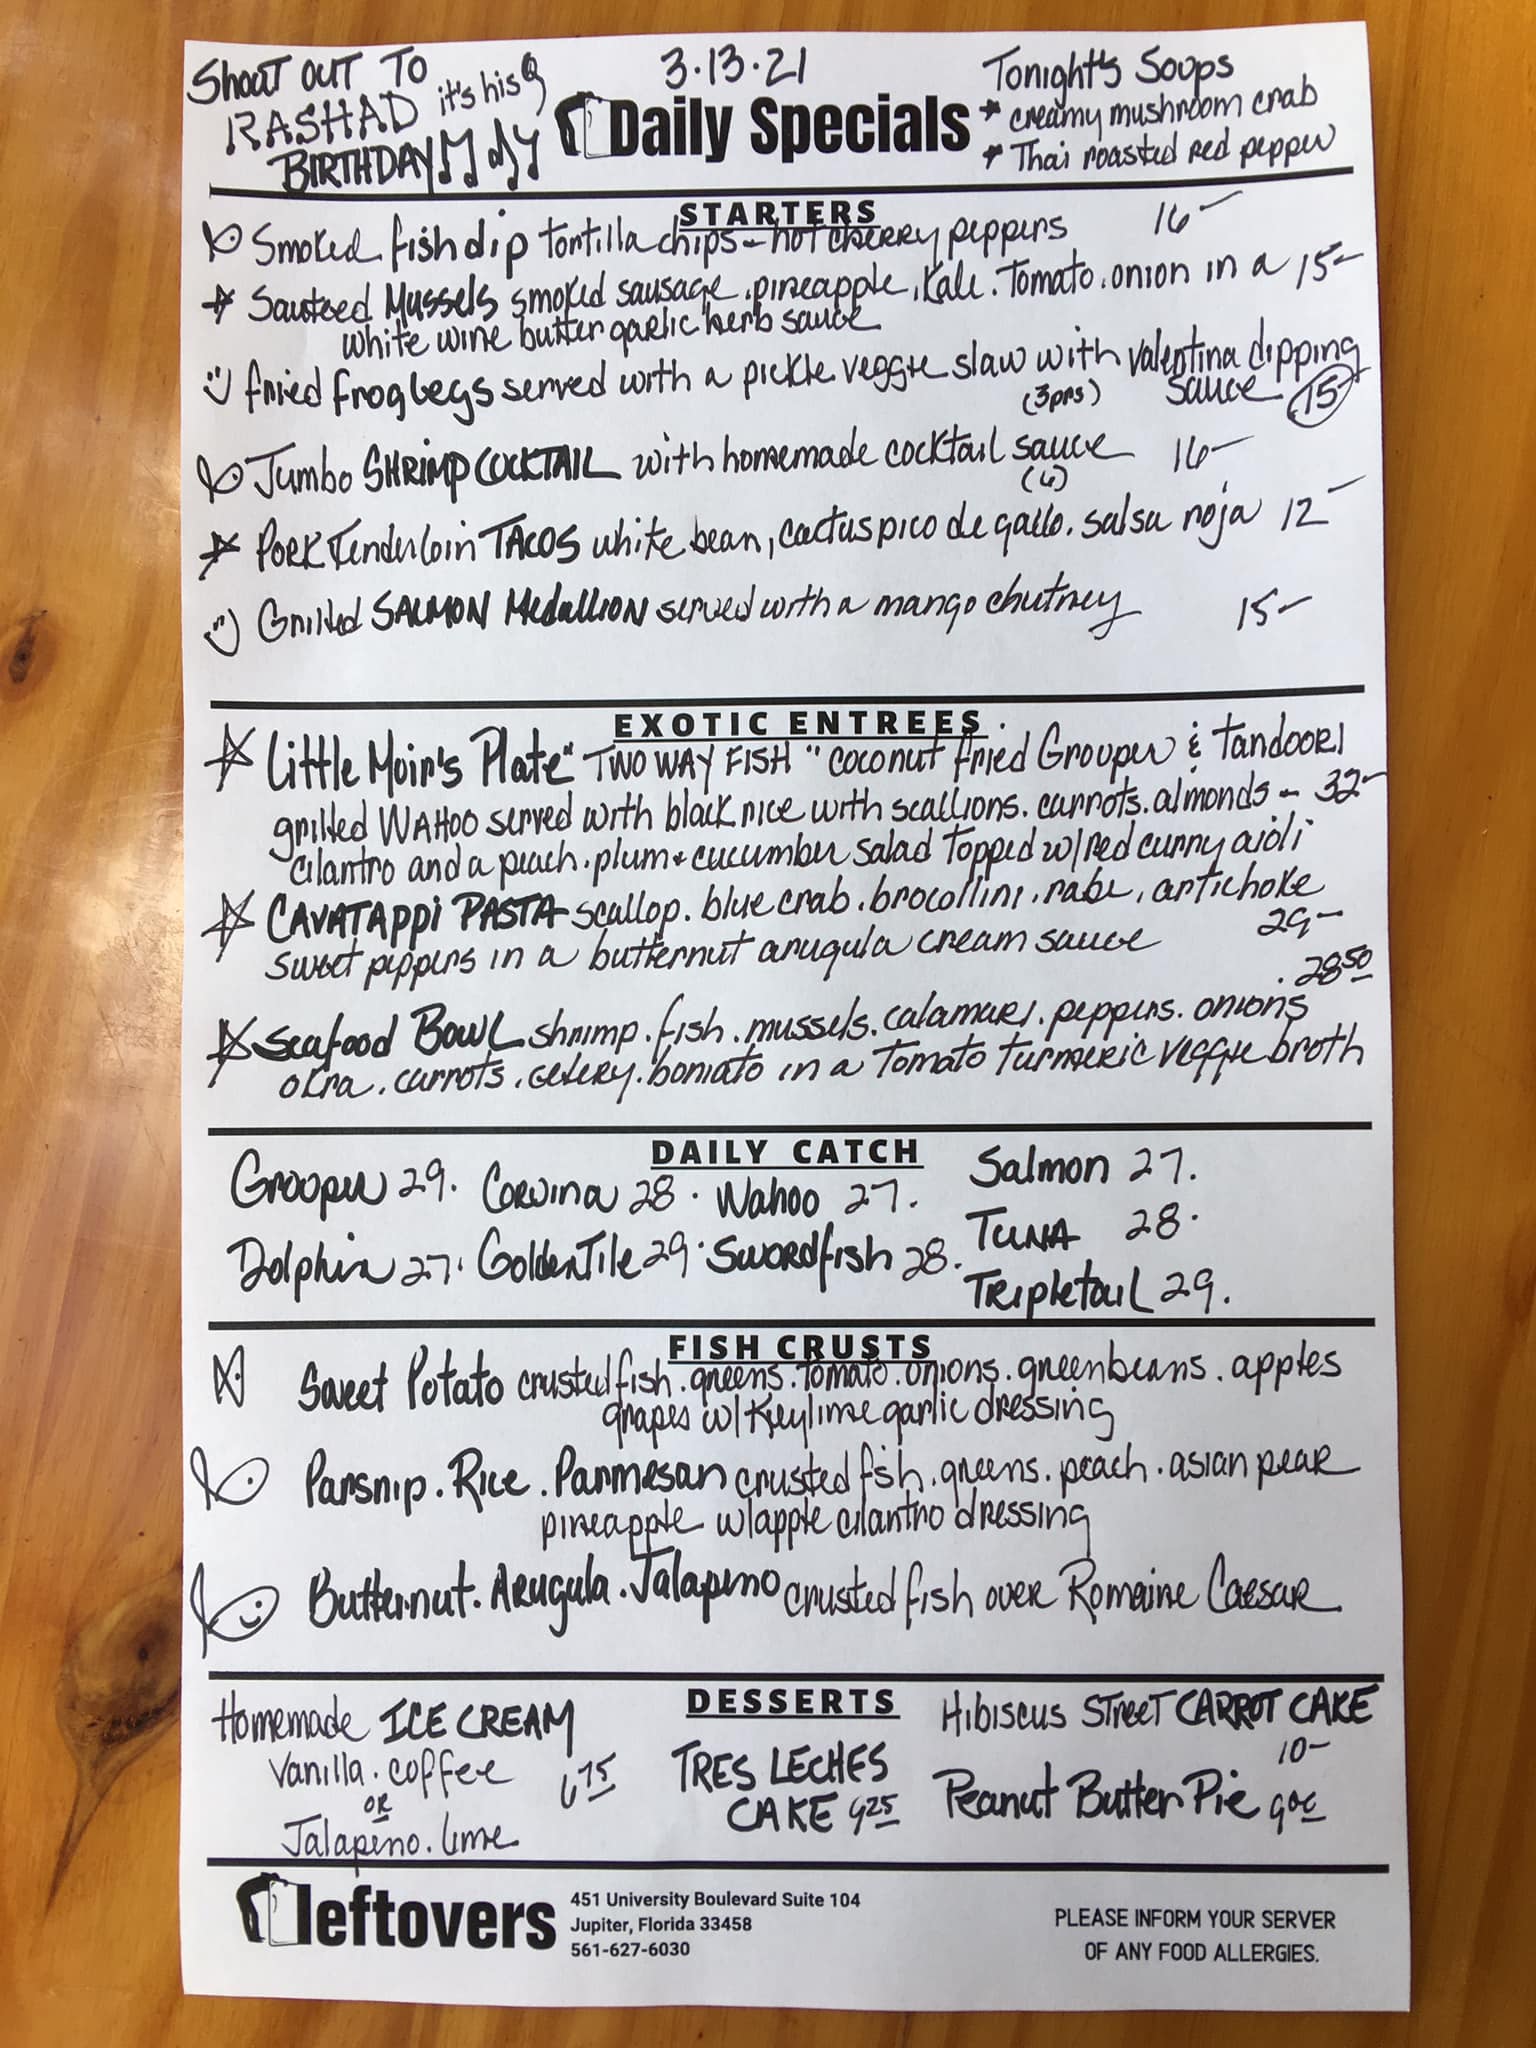 Shout out to
RASHAD it's his
BIRTHDAY
3.13.21
Daily Specials
Tonight's Soups
* creamy mushroom crab
* Thai roasted red pepper
STARTERS
Smoked fish dip tortilla chips - hot cherry peppers 16-
Sauteed Mussels smoked sausage. pineapple. kale. Tomato. onion in a 15-
white wine butter garlic herb sauce
fried froglegs served with a pickle veggie slaw with valentina dipping
(3prs) sauce 15-
Jumbo SHRIMP COCKTAIL with homemade cocktail sauce 16-
(6)
Pork Tenderloin TACOS white bean, cactus pico de gallo. salsa roja 12-
Grilled SALMON Medallion served with a mango chutney 15-
EXOTIC ENTREES
Little Moir's Plate "TWO WAY FISH" coconut fried Grouper & Tandoori
grilled WAHOO served with black rice with scallions. carrots. almonds - 32-
cilantro and a peach. plum + cucumber salad Topped w/red curry aioli
CAVATAPPi PASTA scallop. blue crab. brocollini. rabe, artichoke
29-
sweet peppers in a butternut arugula cream sauce
28 50
Seafood BOWL shrimp. fish. mussels. calamari. peppers. onions
okra. carrots. celery. boniato in a Tomato Turmeric veggie broth
DAILY CATCH
Grouper 29. Corvina 28. Wahoo 27. Salmon 27.
Dolphin 27. Golden Tile 29. Swordfish 28. TUNA 28.
Tripletail 29.
FISH CRUSTS
Sweet Potato crusted fish. greens. tomato. onions. greenbeans. apples
grapes w/ Keylime garlic dressing
Parsnip. Rice. Parmesan crusted fish. greens. peach. asian pear
pineapple w/apple cilantro dressing
Butternut. Arugula. Jalapeno crusted fish over Romaine Caesar
DESSERTS
Homemade ICE CREAM
Vanilla. coffee 6 75
OR
Jalapeno. lime
TRES LECHES
CAKE 9 25
Hibiscus Street CARROT CAKE
10-
Peanut Butter Pie 9 00
leftovers
451 University Boulevard Suite 104
Jupiter, Florida 33458
561-627-6030
PLEASE INFORM YOUR SERVER
OF ANY FOOD ALLERGIES.